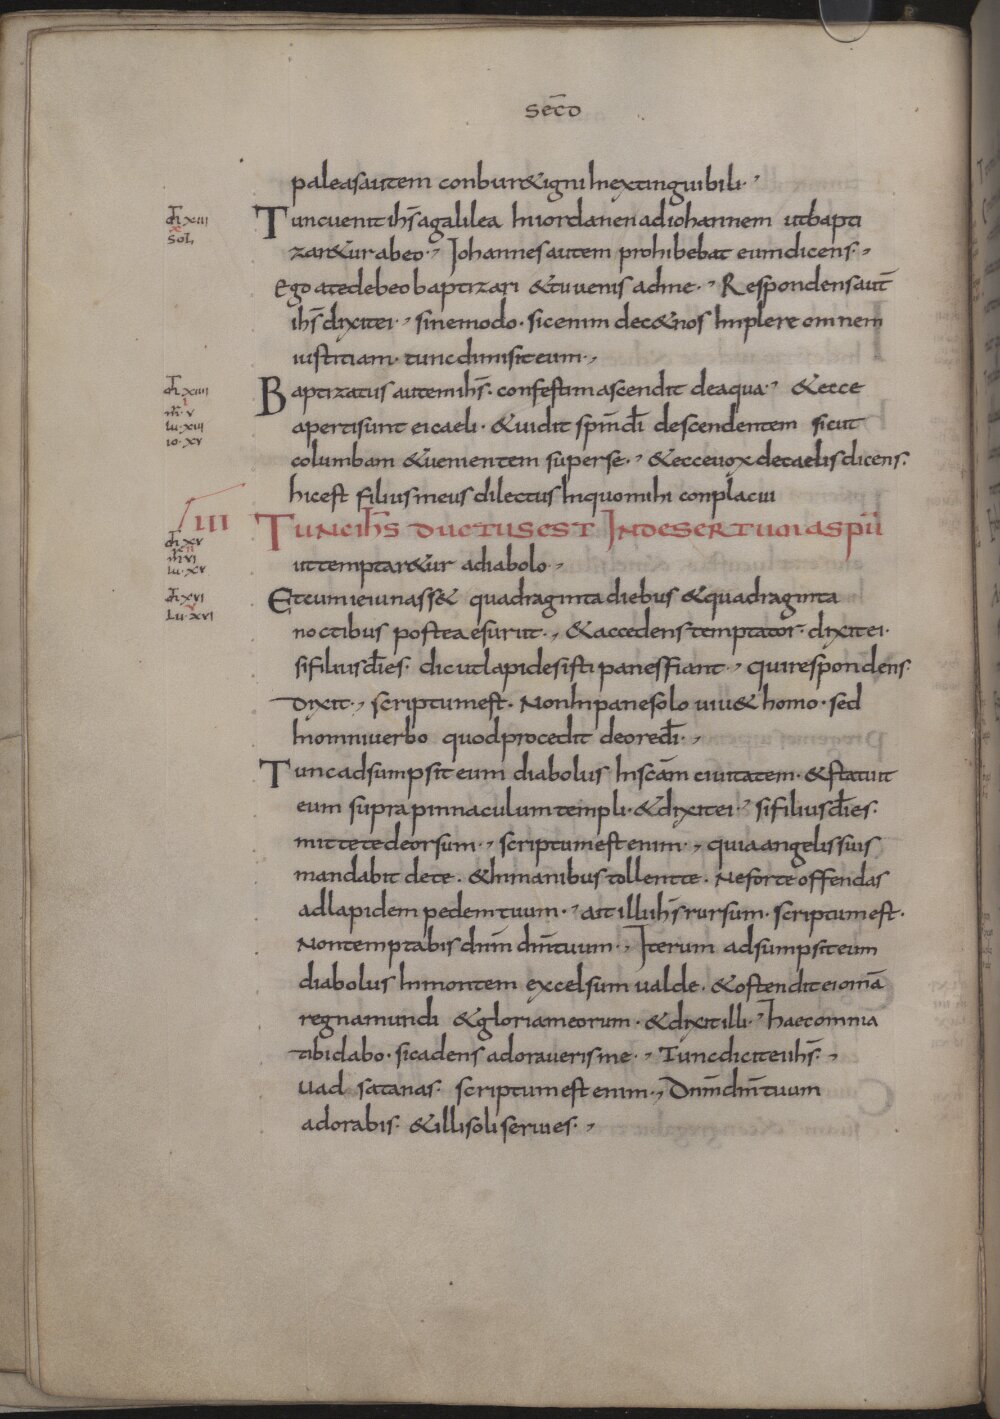 SEC̄D
paleasautem conbur&igni Inextinguibili·
Tuncuenit ih̄s agalilea Iniordanen adiohannem utbapti
zar&ur abeo· Iohannes autem prohibebat eum dicens·
Ego atedebeo baptizari &tu uenis adme· Respondens aut̄
ih̄s dixit ei· sine modo· sic enim dec& nos Implere omnem
iustitiam· tunc dimisit eum·
Baptizatus autem ih̄s· confestim ascendit de aqua· &ecce
aperti sunt ei caeli· &uidit sp̄m d̄i descendentem sicut
columbam &uenientem super se· &ecce uox de caelis dicens·
hic est filius meus dilectus In quo mihi conplacui
III TUNC IH̄S DUCTUS EST IN DESERTUM A SPŪ
ut temptar&ur a diabolo·
Et cum ieiunass& quadraginta diebus &quadraginta
noctibus postea esuriit· &accedens temptator· dixit ei·
si filius d̄i es· dic ut lapides isti panes fiant· qui respondens·
Dixit· scriptum est· Non In pane solo uiu& homo· sed
In omni uerbo quod procedit de ore d̄i·
Tunc adsumpsit eum diabolus In sc̄am ciuitatem· &statuit
eum supra pinnaculum templi· &dixit ei· si filius d̄i es·
mitte te deorsum· scriptum est enim· quia angelis suis
mandabit de te· &In manibus tollent te· Ne forte offendas
ad lapidem pedem tuum· ait illi ih̄s rursum· scriptum est·
Non temptabis dn̄m dm̄ tuum· Iterum adsumpsit eum
diabolus In montem excelsum ualde· &ostendit ei omā
regna mundi &gloriam eorum· &dixit illi· haec omnia
tibi dabo· si cadens adoraueris me· Tunc dicit ei ih̄s·
Uad satanas· scriptum est enim· Dn̄m dm̄ tuum
adorabis· &illi soli seruies·
m̄t xiii
x
sol
m̄t xiiii
i
mr̄ v
lu xiii
io xv
m̄t xv
ii
mr̄ vi
lu xv
m̄t xvi
v
Lu xvi